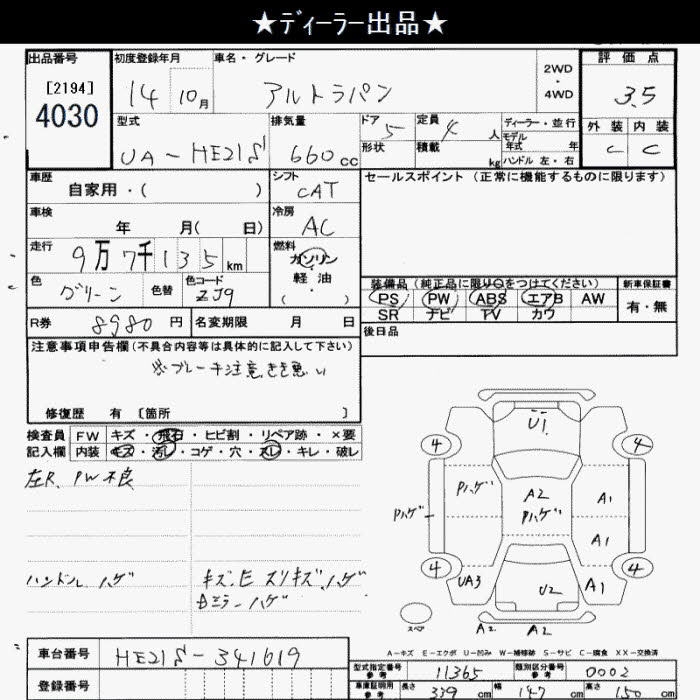 ★ﾃﾞｨｰﾗｰ出品★
出品番号
[2194]
4030
初度登録年月
14 10月
車名・グレード
アルトラパン
2WD
・
4WD
評価点
3.5
外装 内装
C C
型式
UA-HE21S
排気量
660cc
ドア 5
形状
定員 4人
積載 kg
ディーラー・並行
モデル
年式 年
ハンドル 左・右
車歴
自家用・( )
シフト
CAT
セールスポイント (正常に機能するものに限ります)
車検
年 月( 日)
冷房
AC
走行
9万7千135km
燃料
ガソリン
軽油
( ・ )
色
グリーン
色替
色コード
ZJ9
装備品 (純正品に限り○をつけてください)
PS PW ABS エアB AW
SR ナビ TV カワ
新車保証書
有・無
R券 8980円
名変期限 月 日
後日品
注意事項申告欄(不具合内容等は具体的に記入して下さい)
※ブレーキ注意 きき悪い
修復歴 有 [箇所 ]
検査員 FW キズ・飛石・ヒビ割・リペア跡・×要
記入欄 内装 キズ・汚レ・コゲ・穴・スレ・キレ・破レ
左R、PW不良
ハンドル ハゲ
キズ、E スリキズ、ハゲ
Bミラーハゲ
U1
4 4
Pハゲ
A2
Pハゲ
A1
Pハゲ
A1
4 4
UA3
U2
A1
スペア
A2 A2
A-キズ E-エクボ U-凹み W-補修跡 S-サビ C-腐食 XX-交換済
車台番号 HE21S-341619
登録番号
型式指定番号
参考
11365
類別区分番号
参考
0002
車庫証明用
参考
長さ 339cm 幅 147cm 高さ 150cm